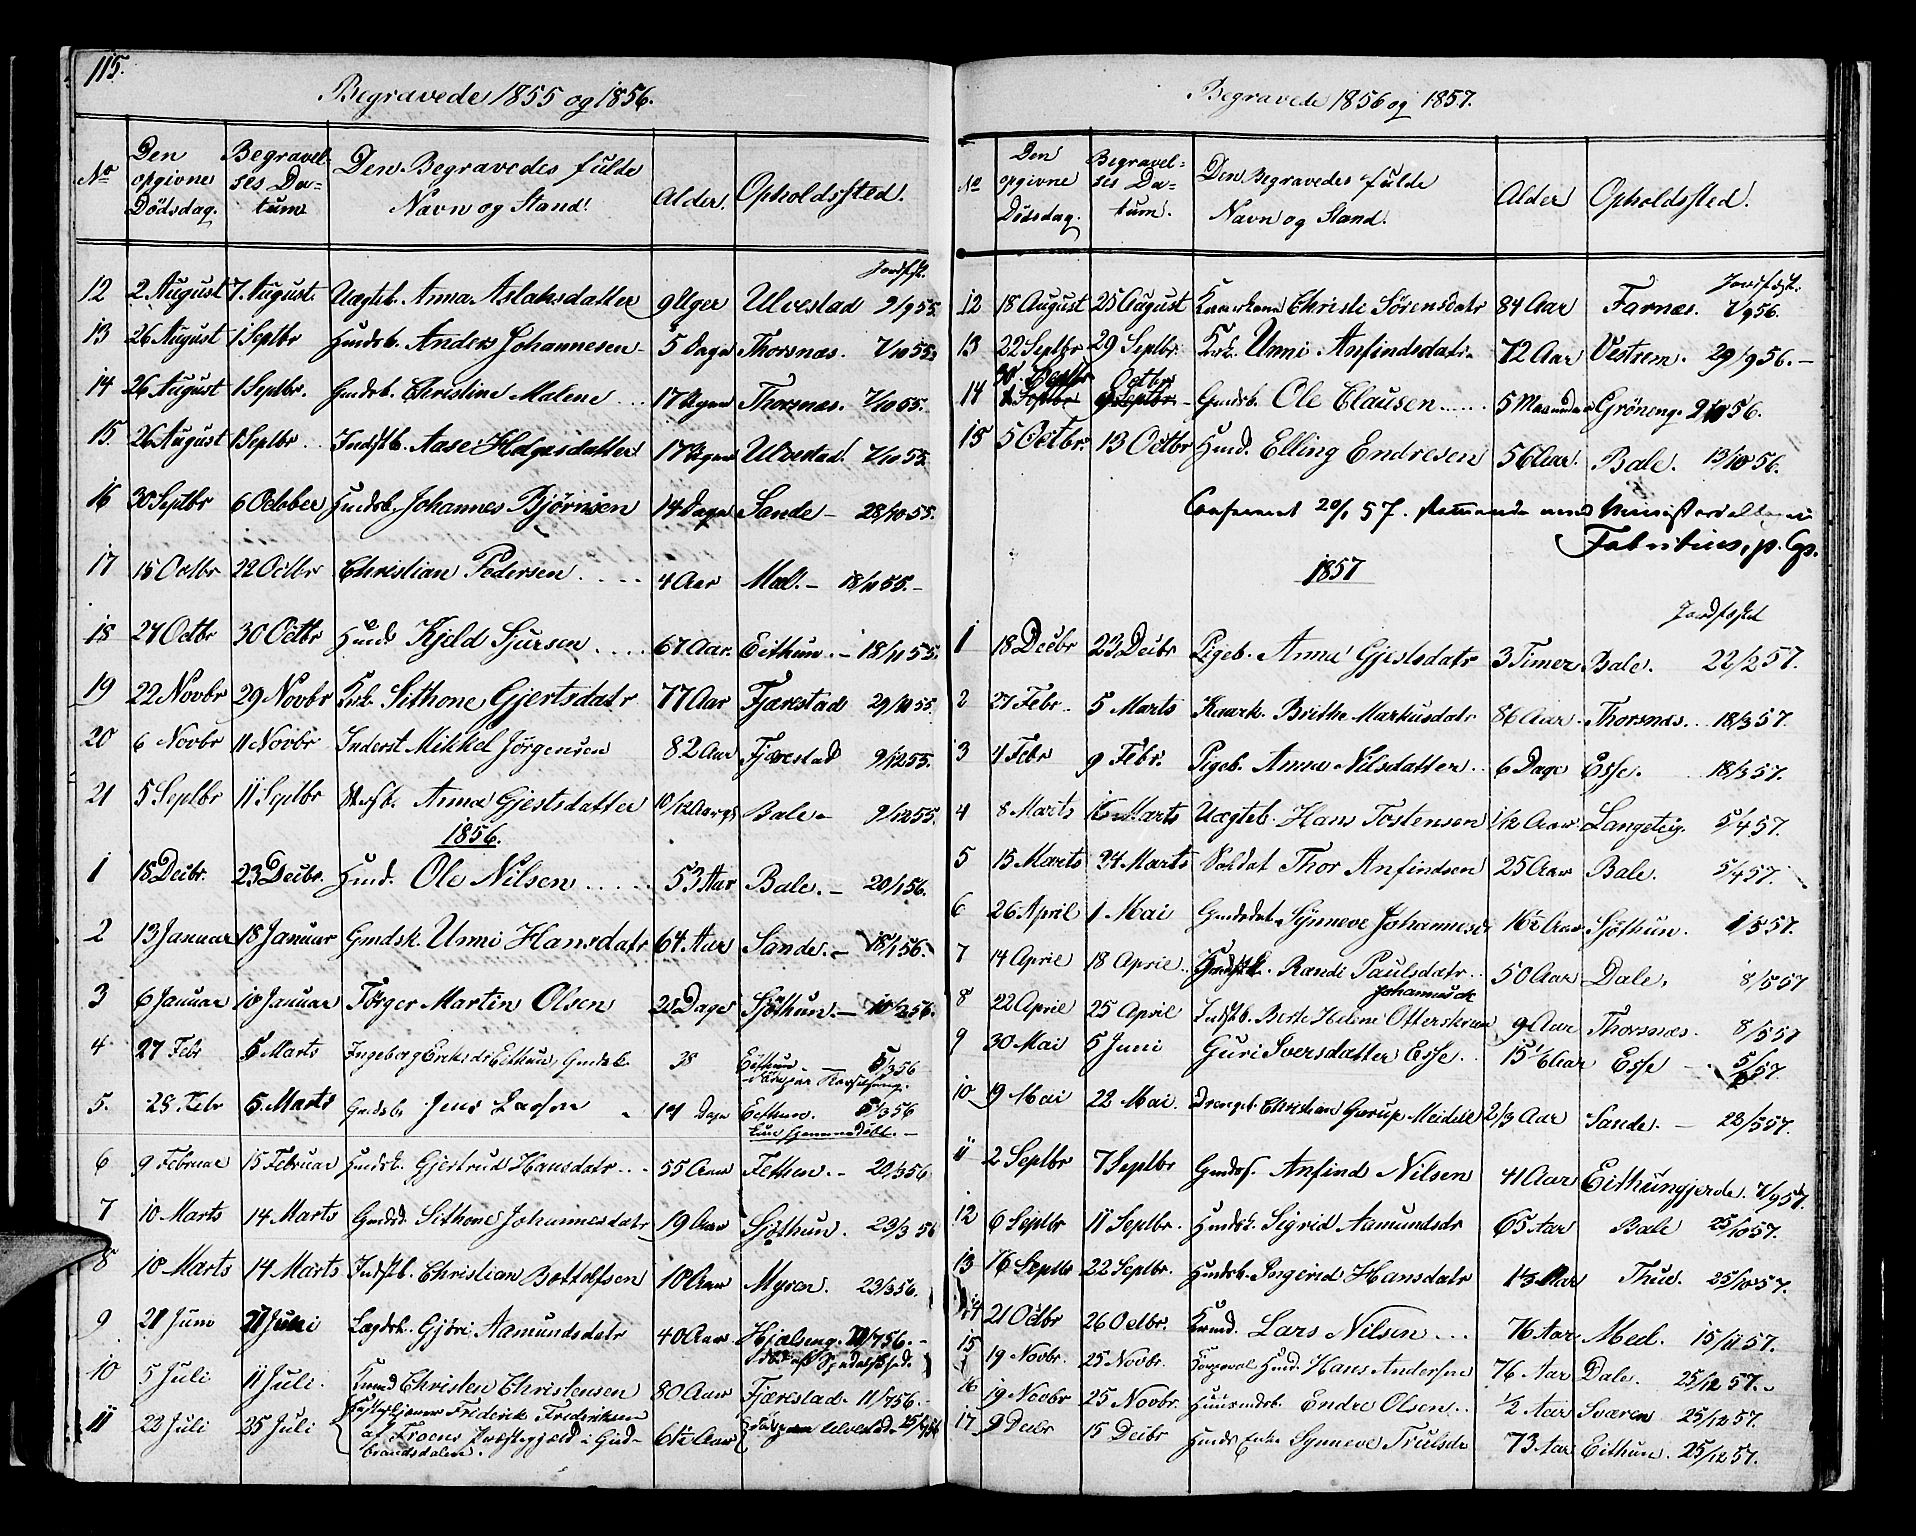 115.
Begravede 1855 og 1856.
No
Den opgivne Dödsdag.
Begravelses Datum
Den Begravedes fulde Navn og Stand.
Alder.
Opholdssted.
Jordfst.
12 2 August 7. August. Uægteb. Anna Aslaksdatter 9 Uger Ulvestad 9/9 55.
13 26 August 1 Septbr Huusb. Anders Johannesen 5 Dage Thorsnæs. 7/10 55.
14 26 August 1 Septbr. Gmdsb. Christine Malene 17 Uger Thorsnæs. 7/10 55.
15. 26 August 1 Septbr Indstb. Aase Helgesdatter 17 Uger Ulvestad. 7/10 55.
16 30 Septbr 6 October Huusb. Johannes Bjørnsen 14 Dage Sande - 28/10 55.
17 15 Octbr 22 Octbr Christian Pedersen 4 Aar Mæl. - 18/11 55. -
18 24 Octbr 30 Octbr Huusd. Kjeld Sjursen 67 Aar. Eithun. - 18/11 55.
19 22 Novbr 29 Novbr Kaark. Sithone Gjertsdatr 77 Aar Fjærestad 29/10 55.
20 6 Novbr 11 Novbr Inderst Mikkel Jörgensen 82 Aar Fjærestad 9/12 55.
21 5 Septbr 11 Septbr Anna Gjertsdatter 10/12 Aar Bale - 9/12 55.
1856.
1 18 Decbr. 23 Decbr. Husd. Ole Nilsen 53 Aar Bale. - 20/1 56.
2 13 Januar 18 Januar Gmdsk. Unni Hansdatr 64 Aar Sande. - 18/1 56.
3 6 Januar 10 Januar Törger Martin Olsen 22 Dage Sjöthun. - 10/2 56.
4 27 Febr 5 Marts Ingeborg Eriksdr Eithun, Gmdsk. 38 Eithun - 5/3 56
5. 28 Febr 5 Marts Gmdsb. Jens Larsen 14 Dage Eithun. 5/3 56
kun hjemmedöbt. -
6 9 Februar 15 Februar Husdsk. Gjertrud Hansdatr 55 Aar Fethen. - 20/3 56
7 10 Marts 14 Marts Gmdsd. Sithone Johannesdatr 19 Aar Sjöthun. 23/3 56
8 10 Marts 14 Marts Indstb. Christian Bottolfsen 10 Aar Myren. 23/3 56.
9 21 Juni 27 Juni Lægdsk. Gjöri Aamundsdatr 40 Aar Hjælseng. 20/7 56. -
10 5 Juli 11 Juli. Kaard Christen Christensen 80 Aar Fjærestad. 11/7 56. -
11 22 Juli 25 Juli Frederik Frederiksen
af Froens Præstegjæld i Gudbrandsdalen. 61½ Aar Ulvestad. 25/7 56
Begravede 1856 og 1857.
No
Den opgivne Dödsdag.
Begravelses Datum.
Den Begravedes fulde Navn og Stand.
Alder
Opholdssted.
Jordfæst.
12 18 August 25 August Kaarkone Christi Sörensdatr 84 Aar Farnæs. 7/9 56.
13 22 Septbr 29 Septbr. Krk. Unni Anfindsdatr 72 Aar Vestrem. 29/9 56. -
14 30 Septbr Octbr Gmdsb. Ole Clausen 5 Maaneder Gröneng 9/10 56.
15 5 Octbr. 13 Octbr Husd. Elling Endresen 56 Aar. Bale. 13/10 56.
Confereret 20/1 57. stemmende med Ministerialbogen
Fabritius, p. Cp.
1857
Jordfæstet
1 18 Decbr 23 Decbr Pigeb. Anna Gjertsdatr 3 Timer Bale. 22/2 57.
2 27 Febr. 5 Marts Kaark. Brithe Markusdatr 86 Aar Thorsnæs. 18/3 57.
3 4 Febr 9 Febr. Pigeb. Anna Nilsdatter 6 Dage Esse. 18/3 57.
4 8 Marts 15 Marts Uægteb. Hans Tostensen 1/12 Aar Langeteig. 5/4 57.
5 15 Marts 24 Marts Soldat Thor Anfindsen 25 Aar Bale. 5/4 57.
6 26 April 1 Mai Gmdsdat. Synneve Johannesd 16½ Aar Sjöthun. 1/5 57.
7 14 April 18 April. Randi Paulsdatr 50 Aar Dale. 8/5 57
8 22 April 25 April Indstb. Berte Helene Johannesdr Otterskreen 9 Aar Thorsnæs. 8/5 57
9 30 Mai 5 Juni Guri Iversdatter Esse. 15 1/6 Aar Esse 5/ 57.
10 19 Mai 22 Mai. Drengeb. Christian Gjerup Meidell 2/3 Aar Sande. - 22/5 57.
11 2 Septbr 7 Septbr Gmdsf. Anfind Nilsen 41 Aar Eithungjerde. 7/9 57.
12 6 Septbr 11 Septbr. Huusdsk. Sigrid Aamundsdr 65 Aar Bale 25/10 57.
13 16 Septbr 22 Septbr. Huusdsk. Ingerid Hansdatr 43 Aar Thue. 25/10 57.
14 21 Octbr 26 Octbr. Krmd. Lars Nilsen 76 Aar Mæl. 15/11 57.
15 19 Novbr. 25 Novbr. Husd. Hans Andersen 76 Aar Dale. 25/12 57. -
16 19 Novbr 25 Novbr. Huusmdsb. Endre Olsen 1/2 Aar Sværen 25/12 57.
17 9 Decbr 15 Decbr Husds Enke Synneve Trulsdr 73 Aar Eithun 25/12 57.